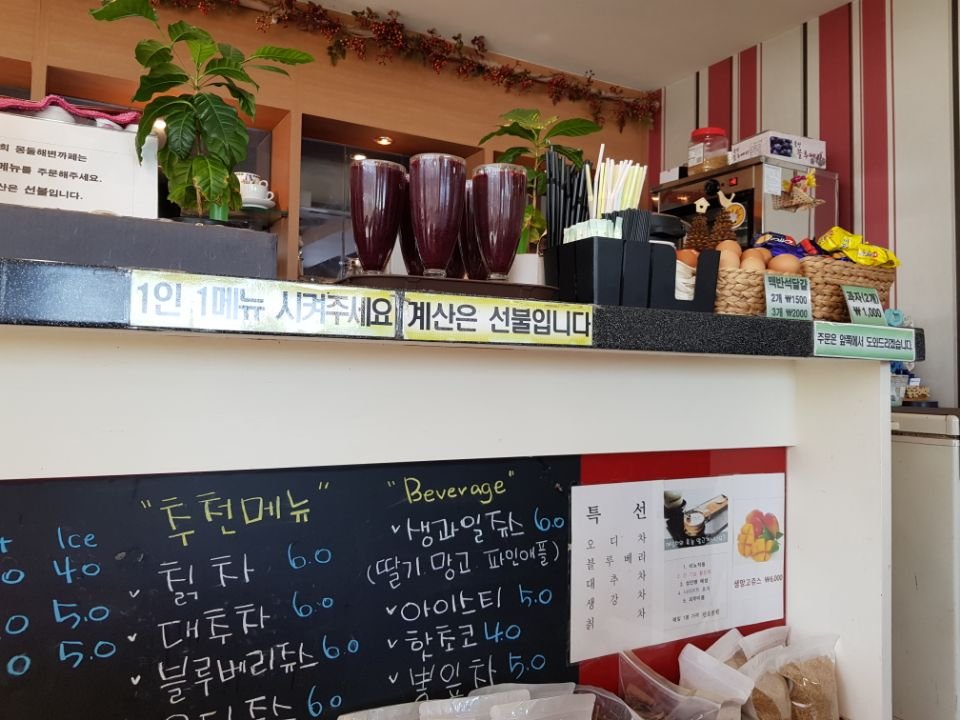 희 몽돌해변까페는
메뉴를 주문해주세요.
산은 선불입니다.
1인 1메뉴 시켜주세요
계산은 선불입니다
맥반석달걀
2개 ₩1500
3개 ₩2000
과자(2개)
₩1,000
주문은 앞쪽에서 도와드리겠습니다.
Ice
0 4.0
0 5.0
0 5.0
"추천메뉴"
칡차 6.0
대추차 6.0
블루베리쥬스 6.0
6.0
"Beverage"
생과일쥬스 6.0
(딸기.망고.파인애플)
아이스티 5.0
핫초코 4.0
뽕잎차 5.0
특 선
오 디 차
블 루 베 리
대 추 차
생 강 차
칡 차
생망고쥬스 ₩6,000